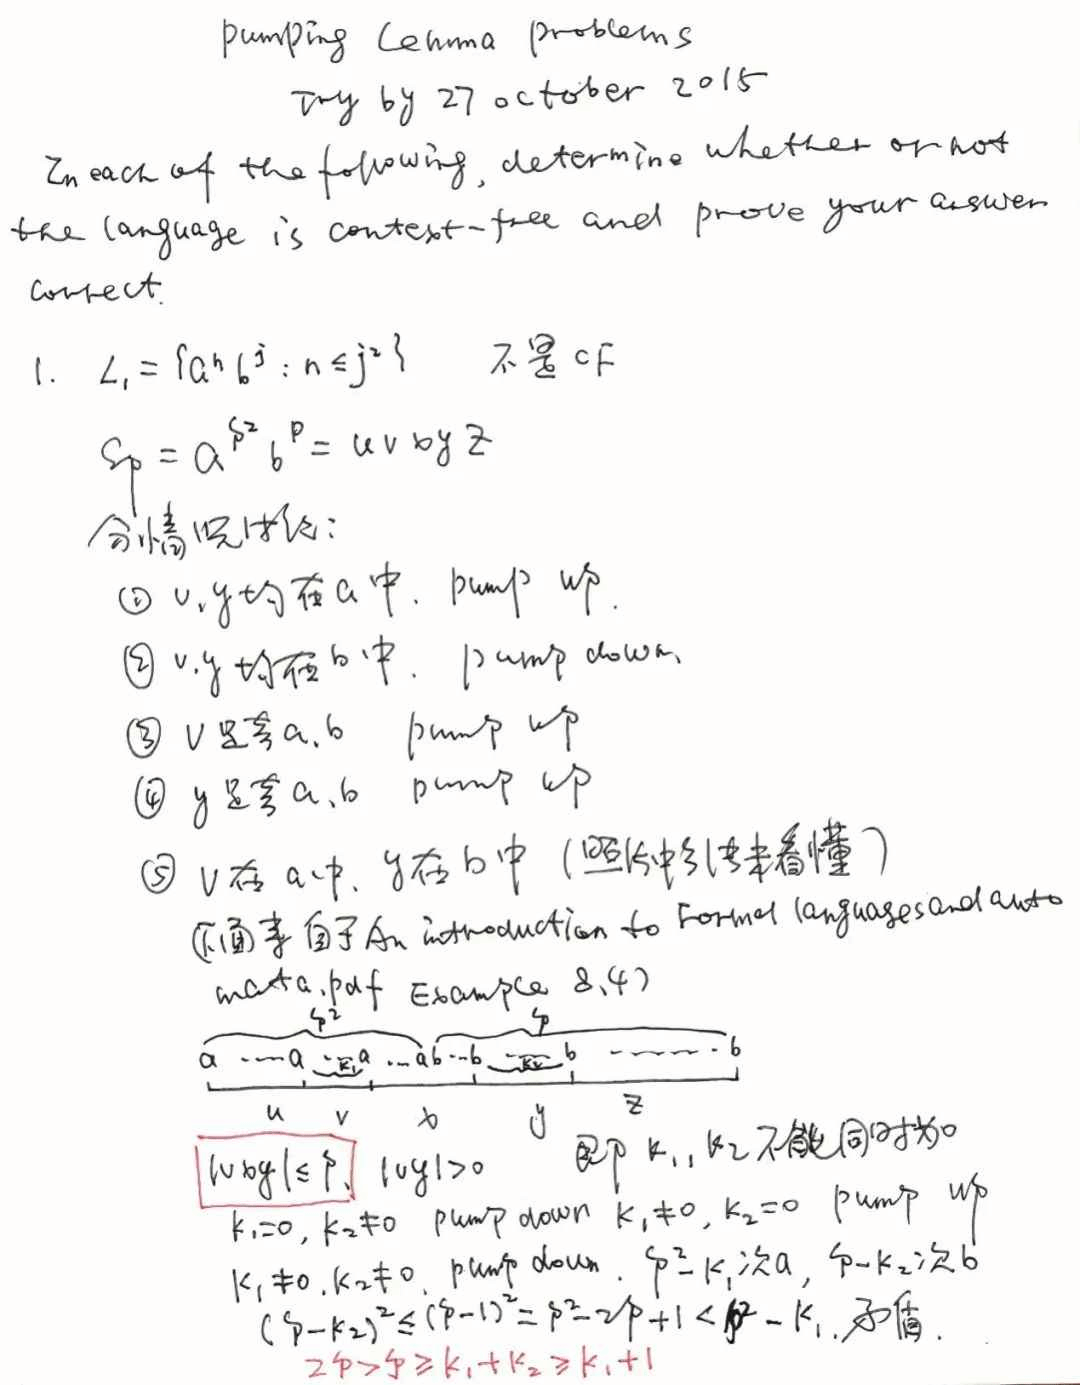 Pumping Lemma problems
Try by 27 october 2015
In each of the following, determine whether or not
the language is context-free and prove your answer
correct.
1. L₁ = {aⁿ bʲ : n ≤ j²} 不是 CF
Sₚ = a^{p²} b^p = uvxyz
分情况讨论:
① v,y均在a中. pump up.
② v.y均在b中. pump down.
③ v是含a.b pump up
④ y是含a.b pump up
⑤ v在a中. y在b中 (照片中引述未看懂)
(下面来自于An introduction to Formal languages and auto
mata.pdf Example 8.4)
p² p
a ……a …k₁ a …ab…b …k₂ b ……… b
u v x y z
|vxy| ≤ p. |vy|>0 即 k₁, k₂不能同时为0
k₁=0, k₂≠0 pump down k₁≠0, k₂=0 pump up
k₁≠0. k₂≠0. pump down. p²-k₁次a, p-k₂次b
(p-k₂)² ≤ (p-1)² = p²-2p+1 < p²-k₁. 矛盾.
2p>p≥k₁+k₂≥k₁+1